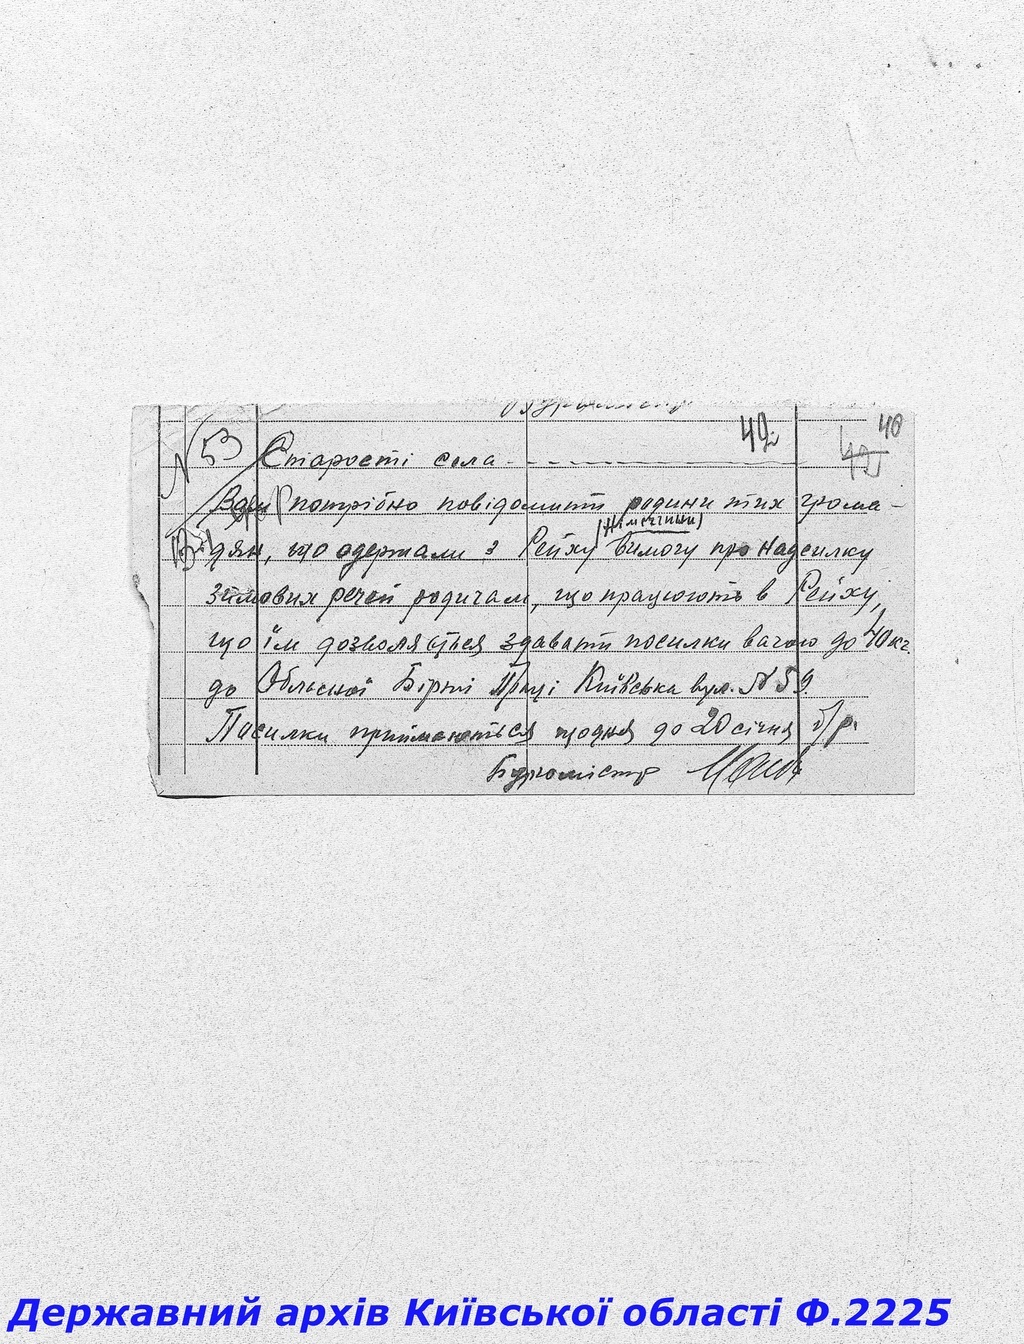 Бургомістр
N 53
42
40
42
Старості села
Вам потрібно повідомити родини тих грома-
дян, що одержали з Рейху (Німеччини) вимогу про надсилку
зимових речей родичам, що працюють в Рейху,
що їм дозволяється здавати посилки вагою до 40 кг.
до Обласної Біржі Праці Київська вул. N 59.
Посилки приймаються щодня до 20 січня б/р.
Бургомістр
Державний архів Київської області Ф.2225